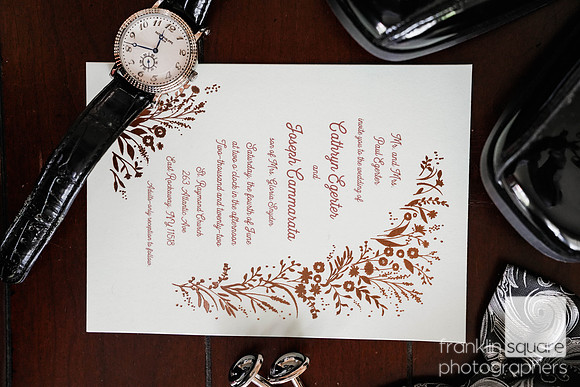 Mr. and Mrs.
Paul Egerter
invite you to the wedding of
Cathryn Egerter
and
Joseph Cammarata
son of Mrs. Gloria Snyder
Saturday, the fourth of June
at two o'clock in the afternoon
Two-thousand and twenty-two
St. Raymond Church
263 Atlantic Ave
East Rockaway NY 11518
Adults-only reception to follow
franklin square
photographers